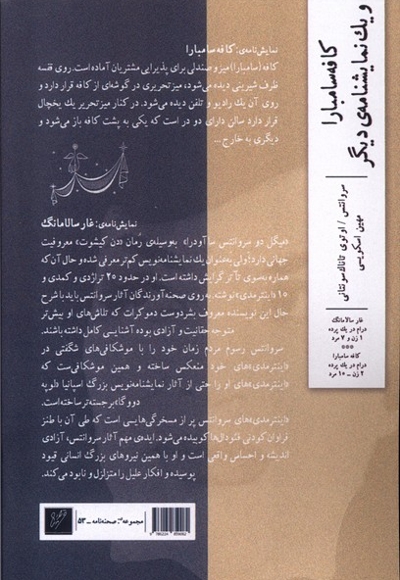 کافه سامبارا
و یك نمایشنامه‌ی دیگر
سروانتس / اوتوی تاناك سونتانی
مهین اسکویی
غار سالامانگ
درام در یك پرده
۱ زن و ۷ مرد
***
کافه سامبارا
درام در یك پرده
۲ زن ـ ۱۰ مرد
نمایش‌نامه‌ی: کافه سامبارا
کافه (سامبارا) میز و صندلی برای پذیرایی مشتریان آماده است. روی قفسه
ظرف شیرینی دیده می‌شود، میزتحریری در گوشه‌ای از کافه قرار دارد و
روی آن یك رادیو و تلفن دیده می‌شود. در کنار میزتحریر یك یخچال
قرار دارد سالن دارای دو در است که یکی به پشت کافه باز می‌شود و
دیگری به خارج ...
نمایش‌نامه‌ی: غار سالامانگ
«میگل دو سروانتس سـآودرا» به‌وسیله‌ی رمان «دن کیشوت» معروفیت
جهانی دارد؛ ولی به‌عنوان یك نمایشنامه‌نویس کم‌تر معرفی شده و حال آن که
همواره به‌سوی تآتر گرایش داشته است. او در حدود ۲۰ تراژدی و کمدی و
۱۰ «اینترمدی» نوشته. به روی صحنه‌آورندگان آثار سروانتس باید با شرح
حال این نویسنده معروف بشردوست دموکرات که تلاش‌های او بیش‌تر
متوجه حقانیت و آزادی بوده آشنایی کامل داشته باشند.
سروانتس رسوم مردم زمان خود را با موشکافی‌های شگفتی در
«اینترمدی»های خود منعکس ساخته و همین موشکافی‌ست که
«اینترمدی»های او را حتی از آثار نمایشنامه‌نویس بزرگ اسپانیا «لوپه
دووگا» برجسته‌تر ساخته است.
«اینترمدی»های سروانتس پر از مسخرگی‌هایی است که طی آن با طنز
فراوان کودنی فئودال‌ها کوبیده می‌شود. ایده‌ی مهم آثار سروانتس، آزادی
اندیشه و احساس واقعی است و او با همین نیروهای بزرگ انسانی قیود
پوسیده و افکار علیل را متزلزل و نابود می‌کند.
مجموعه صحنه‌نامه ـ ۵۳